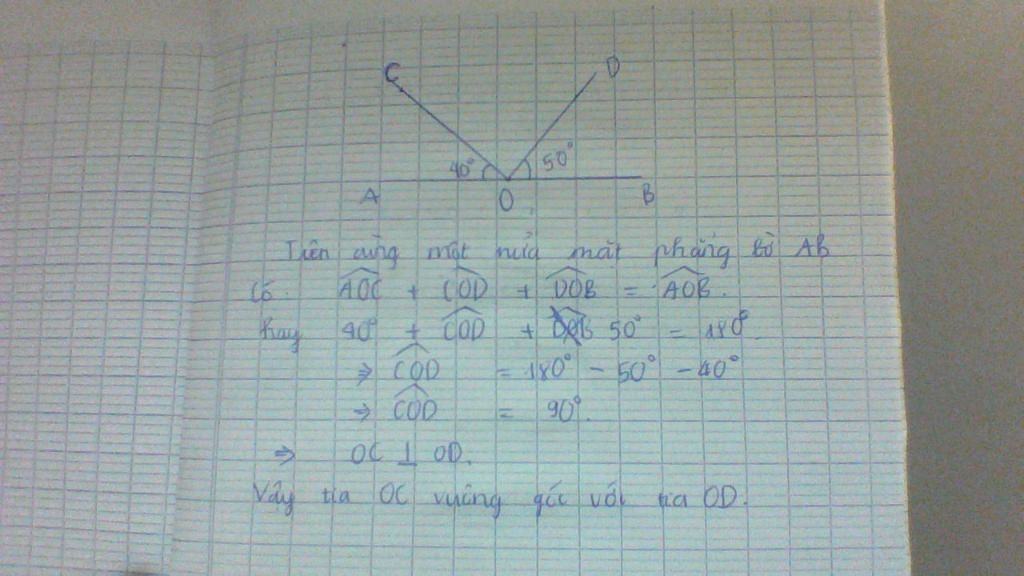 C D
40° 50°
A O B
Trên cùng một nửa mặt phẳng bờ AB
Có: AOC + COD + DOB = AOB.
hay 40° + COD + 50° = 180°.
⇒ COD = 180° - 50° - 40°
⇒ COD = 90°.
⇒ OC ⊥ OD.
Vậy tia OC vuông góc với tia OD.